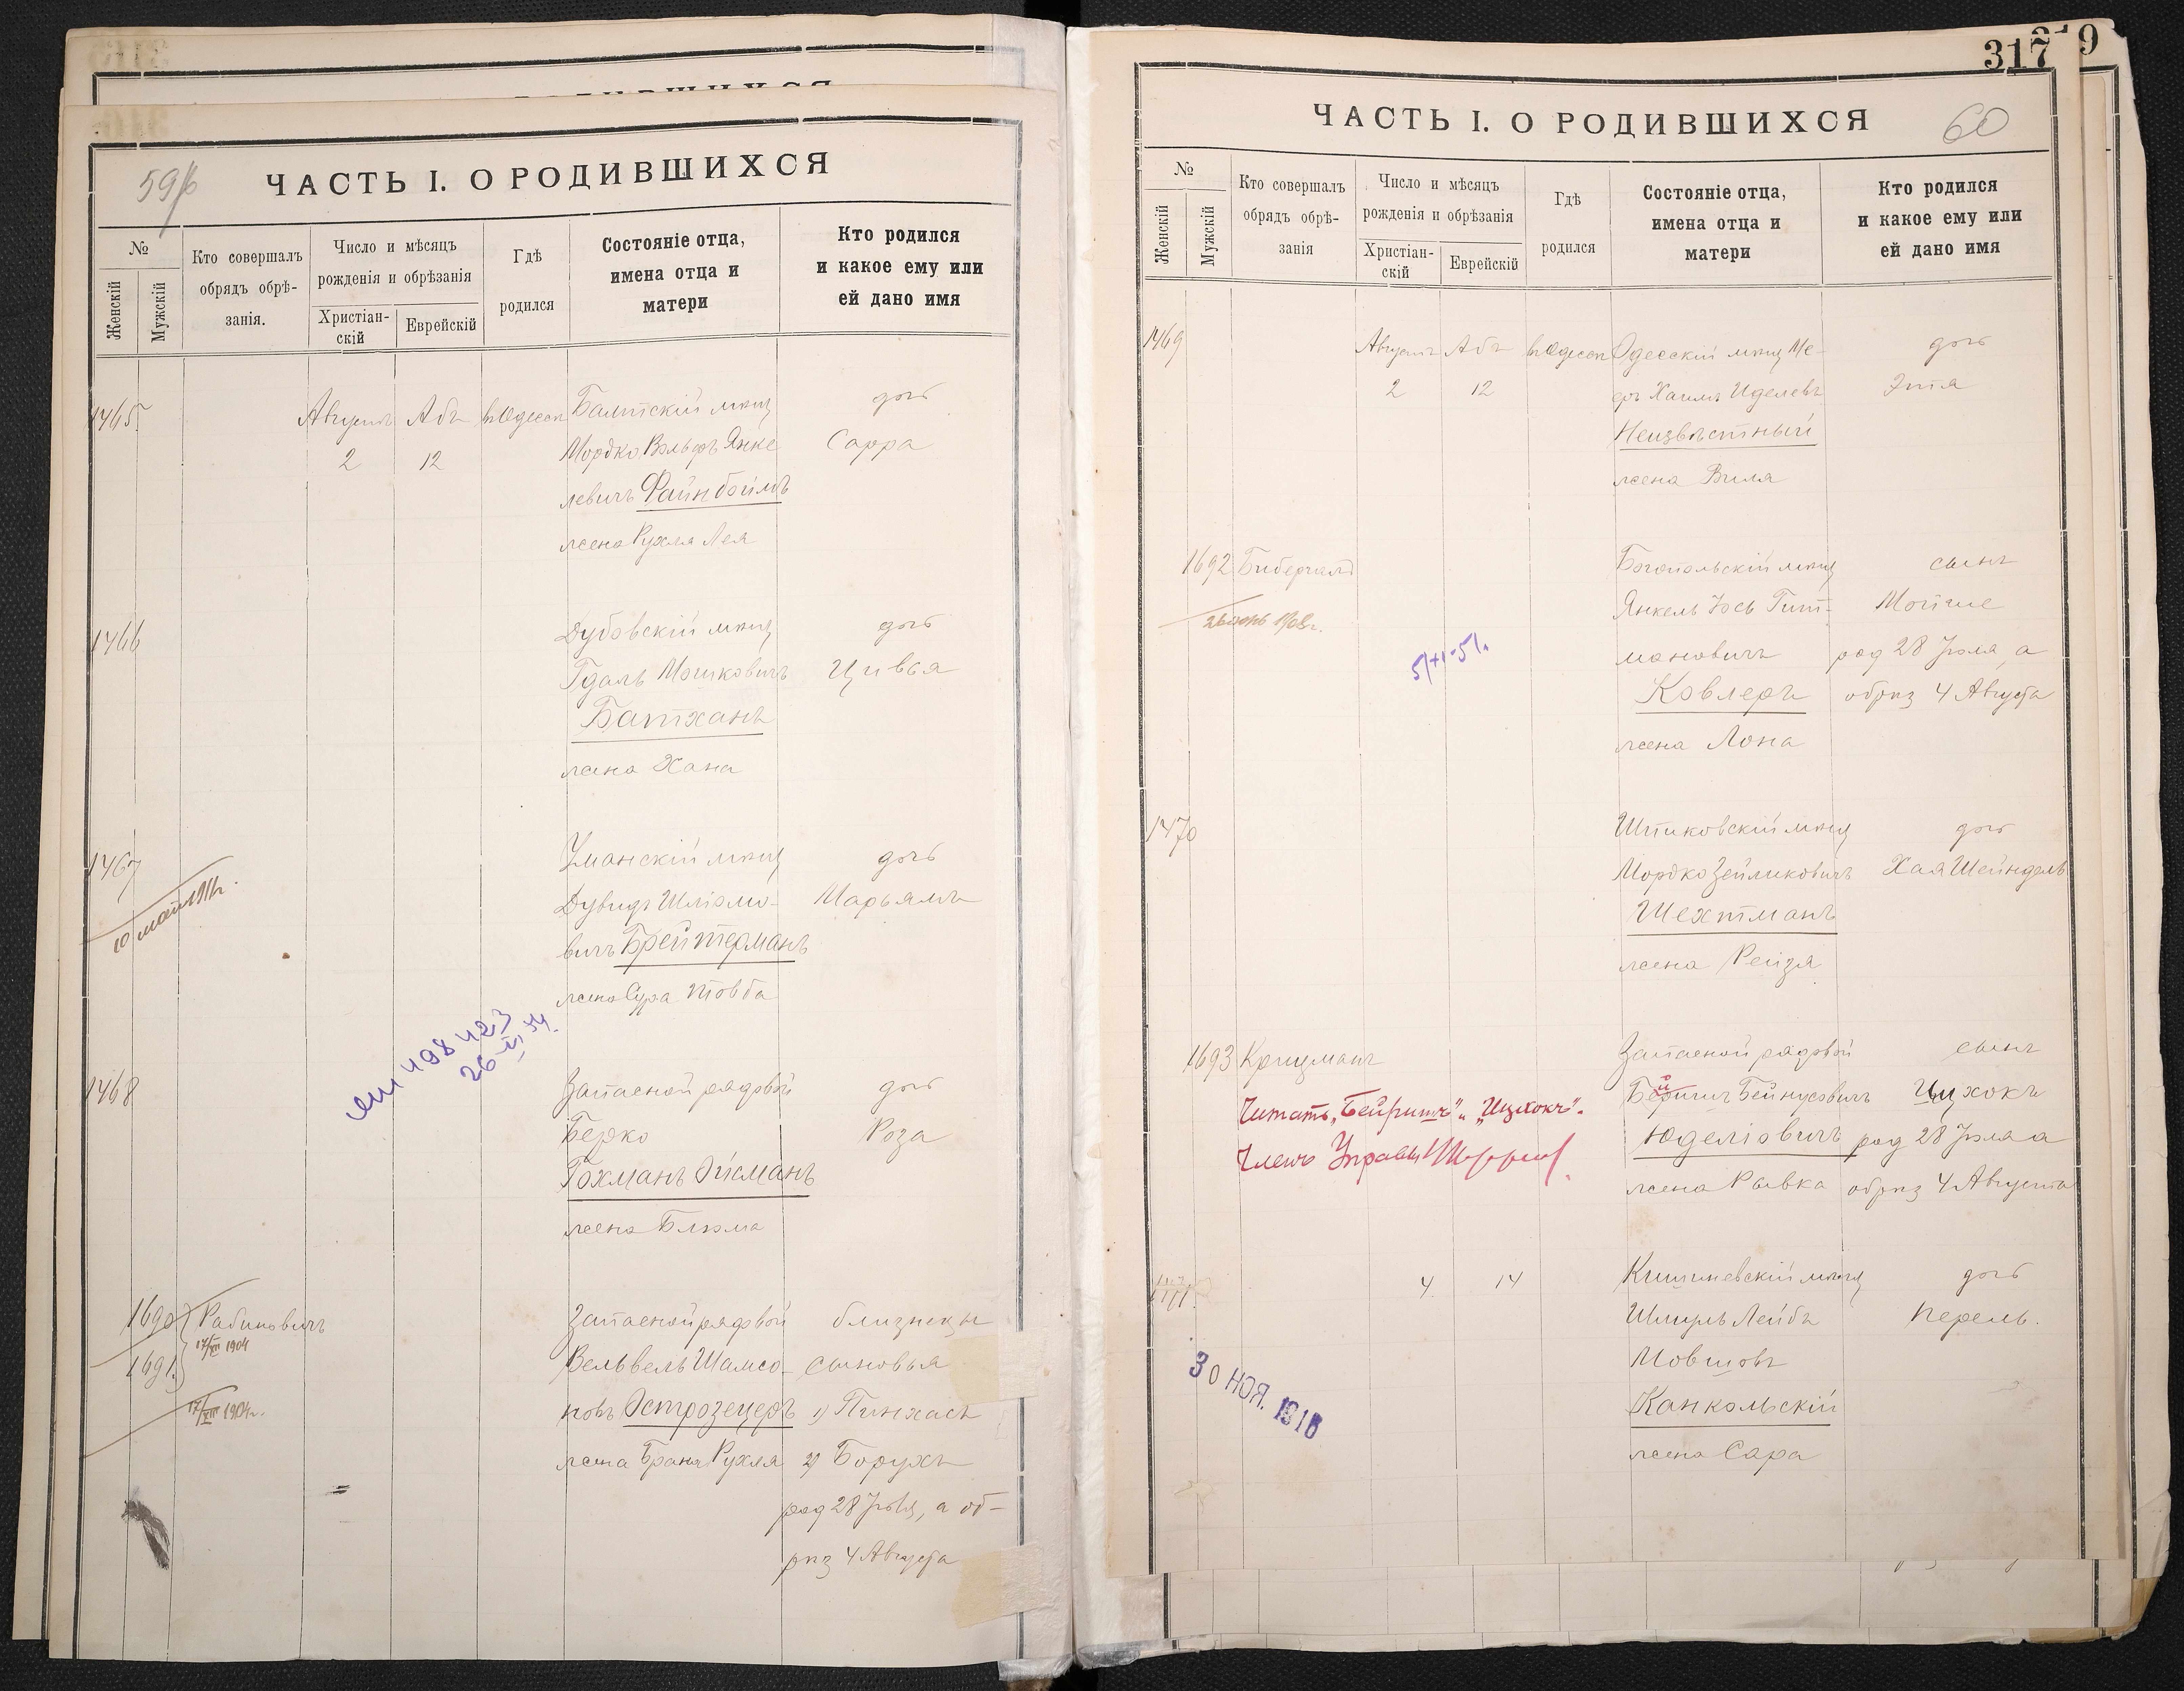 59/б
ЧАСТЬ I. О РОДИВШИХСЯ
№
Женскій
Мужскій
Кто совершалъ
обрядъ обрѣ-
занія.
Число и мѣсяцъ
рожденія и обрѣзанія
Христіан-
скій
Еврейскій
Гдѣ
родился
Состояніе отца,
имена отца и
матери
Кто родился
и какое ему или
ей дано имя
1465 Августъ Абъ въ Одессѣ Балтскій мѣщ дочь
2 12 Мордко Вольфъ Янке Сарра
левичъ Файнбоймъ
жена Рухля Лея
1466 Дубовскій мѣщ дочь
Гдаль Мошковичъ Цивья
Батханъ
жена Хана
1467 Уманскій мѣщ дочь
10 мая 1911г. Дувидъ Шліомо- Марьямъ
вичъ Брейтерманъ
жена Сура Товба
498423
26 VI 54.
1468 Запасной рядовой дочь
Берко Роза
Гохманъ Ойкманъ
жена Блюма
1690 Рабиновичъ Запасной рядовой близнецы
17/VIII 1904
1691. Вельвель Шамсо- сыновья
17/VIII 1904г. новъ Острозецеръ 1) Пинхасъ
жена Браня Рухля 2) Борухъ
род 28 Іюля, а об-
рѣз 4 Августа
317
319
60
ЧАСТЬ I. О РОДИВШИХСЯ
№
Женскій
Мужскій
Кто совершалъ
обрядъ обрѣ-
занія
Число и мѣсяцъ
рожденія и обрѣзанія
Христіан-
скій
Еврейскій
Гдѣ
родился
Состояніе отца,
имена отца и
матери
Кто родился
и какое ему или
ей дано имя
1469 Августъ Абъ въ Одессѣ Одесскій мѣщ Ме- дочь
2 12 еръ Хаимъ Иделевъ Этя
Неизвѣстный
жена Виля
1692 Бибергалъ Богопольскій мѣщ сынъ
1908г. Янкель Іось Гит- Мойше
мановичъ род 28 Іюля, а
Ковлеръ обрѣз 4 Августа
жена Лона
1470 Шпиковскій мѣщ дочь
Мордко Зейликовичъ Хая Шейндель
Шехтманъ
жена Рейзя
1693 Крицманъ Запасной рядовой сынъ
Беришъ Бейнусовичъ Ицхокъ
Читать „Бейришъ“ „Ицхокъ“.
Юделіовичъ род 28 Іюля а
Членъ Управы
жена Рывка обрѣз 4 Августа
1471. 4 14 Кишиневскій мѣщ дочь
Шмуль Лейбъ Перель.
Мовшовъ
30 НОЯ. 1916
Канкольскій
жена Сара